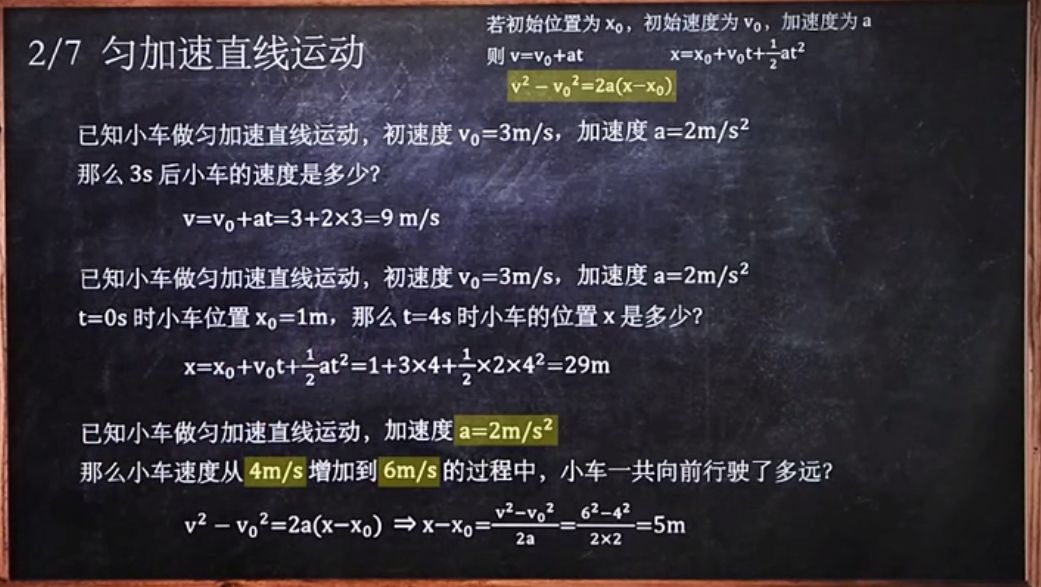 若初始位置为 x₀，初始速度为 v₀，加速度为 a
2/7 匀加速直线运动
则 v=v₀+at x=x₀+v₀t+½at²
v² − v₀²=2a(x−x₀)
已知小车做匀加速直线运动，初速度 v₀=3m/s，加速度 a=2m/s²
那么 3s 后小车的速度是多少?
v=v₀+at=3+2×3=9 m/s
已知小车做匀加速直线运动，初速度 v₀=3m/s，加速度 a=2m/s²
t=0s 时小车位置 x₀=1m，那么 t=4s 时小车的位置 x 是多少?
x=x₀+v₀t+½at²=1+3×4+½×2×4²=29m
已知小车做匀加速直线运动，加速度 a=2m/s²
那么小车速度从 4m/s 增加到 6m/s 的过程中，小车一共向前行驶了多远?
v² − v₀²=2a(x−x₀) ⇒ x−x₀=(v²−v₀²)/2a=(6²−4²)/2×2=5m